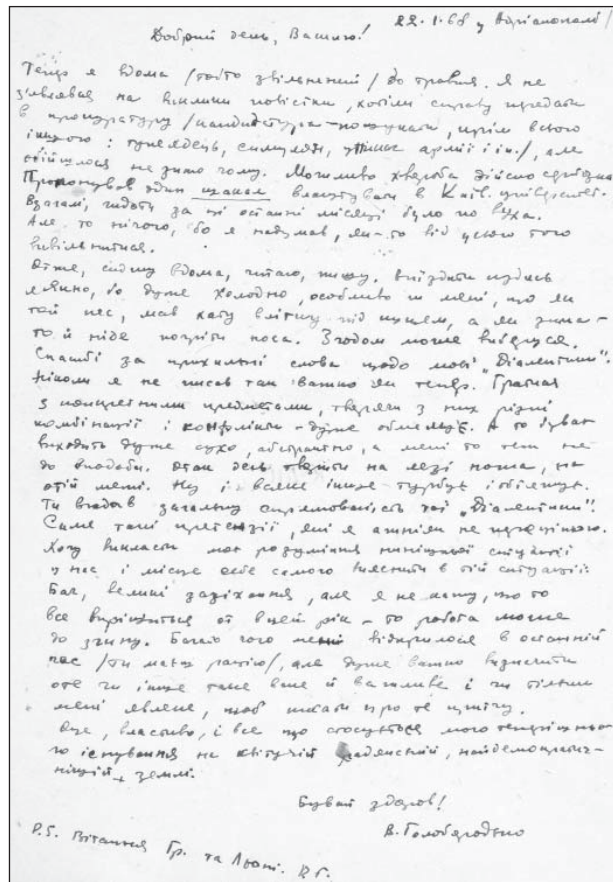 22.1.68 у Адріанополі/
Добрий день, Василю!
Тепер я вдома /тобто звільнений/ до травня. Я не
з'являвся на виклики повістки, хотіли справу передати
в прокуратуру /кандидатура — , крім всього
іншого: , симулянт, армії і ін./, але
обійшлося не знаю чому. Можливо хвороба дійсно серйозна.
Пропонував один влаштувати в Київ. університет.
Взагалі, гидоти за ці останні місяці було по вуха.
Але то нічого, бо я надумав, як-то від усього того
вивільнитися.
Отже, сиджу вдома, читаю, пишу. Виїздити кудись
, бо дуже холодно, особливо ж мені, що як
той пес, мав хату влітку під кущем, а як зима —
то й ніде погріти носа. Згодом може виберуся.
Спасибі за прихильні слова щодо моєї "Діалектики".
Ніколи я не писав так важко як тепер. Граюся
з конкретними предметами, творячи з них різні
комбінації і конфлікти — дуже обмежує. А то буває
виходить дуже сухо, абстрактно, а мені то теж не
до вподоби. Отак десь на лезі ножа, на
отій межі. Ну і всяке інше турбує і обіляту.
Ти вгадав загальну спрямованість тої "Діалектики".
Саме такі претензії, які я аж ніяк не .
Хочу викласти моє розуміння нинішньої ситуації
у нас і місце себе самого вияснити в тій ситуації.
Бач, великі зазіхання, але я не кажу, що то
все вирішиться от в цей рік — то робота може
до згину. Багато чого мені відкрилося в останній
час /ти маєш рацію/, але дуже важко визначити
оте чи інше таке вже й важливе і чи тільки
мені явлене, щоб писати про те .
Оце, властиво, і все що стосується мого теперішньо-
го існування на квітучій радянській, найдемократич-
нішій землі.
Бувай здоров!
В. Голобородько
P.S. Вітання Гр. та Льоні. В.Г.